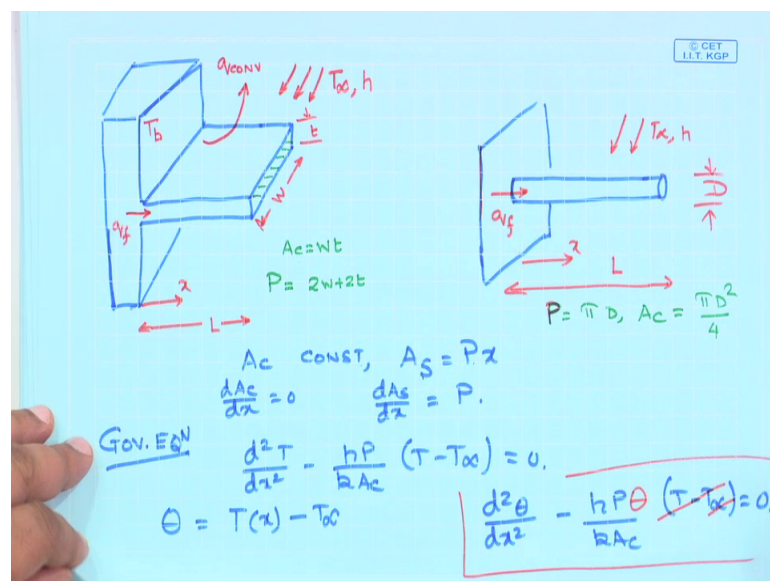 © CET
I.I.T. KGP
qconv
T∞, h
Tb
t
W
qf
x
L
Ac = Wt
P = 2W+2t
T∞, h
D
qf
x
L
P = πD, Ac = πD²/4
Ac CONST, As = P.x
dAc/dx = 0    dAs/dx = P.
GOV. EQN    d²T/dx² - hP/kAc (T-T∞) = 0.
θ = T(x) - T∞
d²θ/dx² - hPθ/kAc (T-T∞) = 0